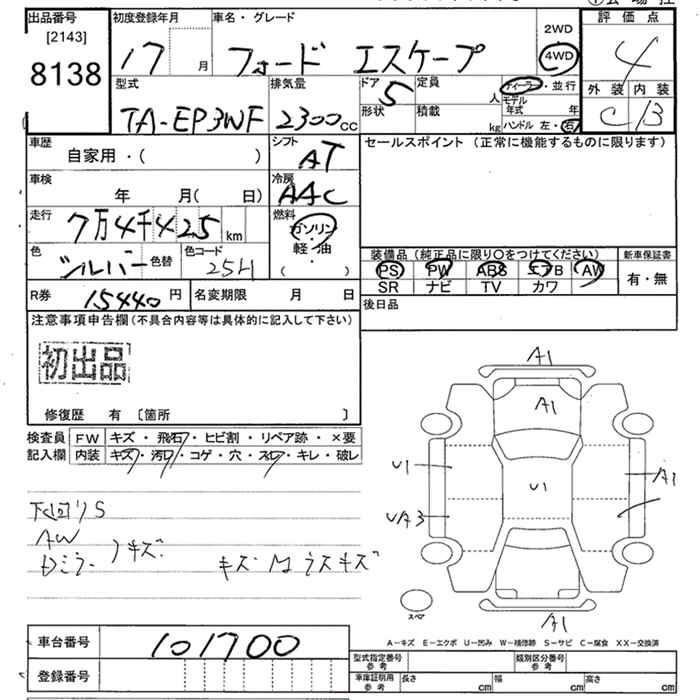 出品番号
[2143]
8138
初度登録年月
17 月
車名・グレード
フォード エスケープ
2WD
4WD
評価点
4
外装 内装
C B
型式
TA-EP3WF
排気量
2300cc
ドア 5
形状
定員 人
積載 kg
ディーラー・並行
モデル年式 年
ハンドル 左・右
車歴
自家用・( )
シフト
AT
セールスポイント(正常に機能するものに限ります)
車検
年 月( 日)
冷房
AAC
走行
7万4千425 km
燃料
ガソリン
軽・油
( )
色
シルバー
色替
色コード
25H
装備品(純正品に限り○をつけてください)
新車保証書
PS PW ABS エアB AW
有・無
SR ナビ TV カワ
R券 15440 円
名変期限 月 日
後日品
注意事項申告欄(不具合内容等は具体的に記入して下さい)
初出品
修復歴 有 〔箇所 〕
検査員
記入欄
FW キズ・飛石・ヒビ割・リペア跡・×要
内装 キズ・汚れ・コゲ・穴・スレ・キレ・破レ
下回りS
AW
キズ
キズ
A1
A1
U1
U1
A1
UA3
A1
スペア
A-キズ E-エクボ U-凹み W-補修跡 S-サビ C-腐食 XX-交換済
車台番号
101700
登録番号
型式指定番号
参考
類別区分番号
参考
車庫証明用
参考
長さ cm
幅 cm
高さ cm